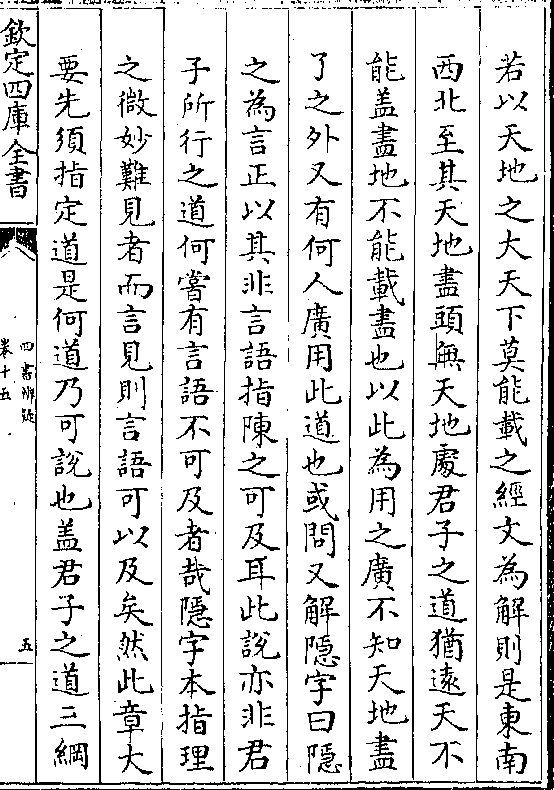 若以天地之大天下莫能載之經文為解則是東南
西北至其天地盡頭無天地處君子之道猶遠天不
能盖盡地不能載盡也以此為用之廣不知天地盡
了之外又有何人廣用此道也或問又解隠字曰隠
之為言正以其非言語指陳之可及耳此說亦非君
子所行之道何嘗有言語不可及者哉隠字本指理
之微妙難見者而言見則言語可以及矣然此章大
要先須指定道是何道乃可說也盖君子之道三綱
欽定四庫全書
四書辨疑
卷十五
五